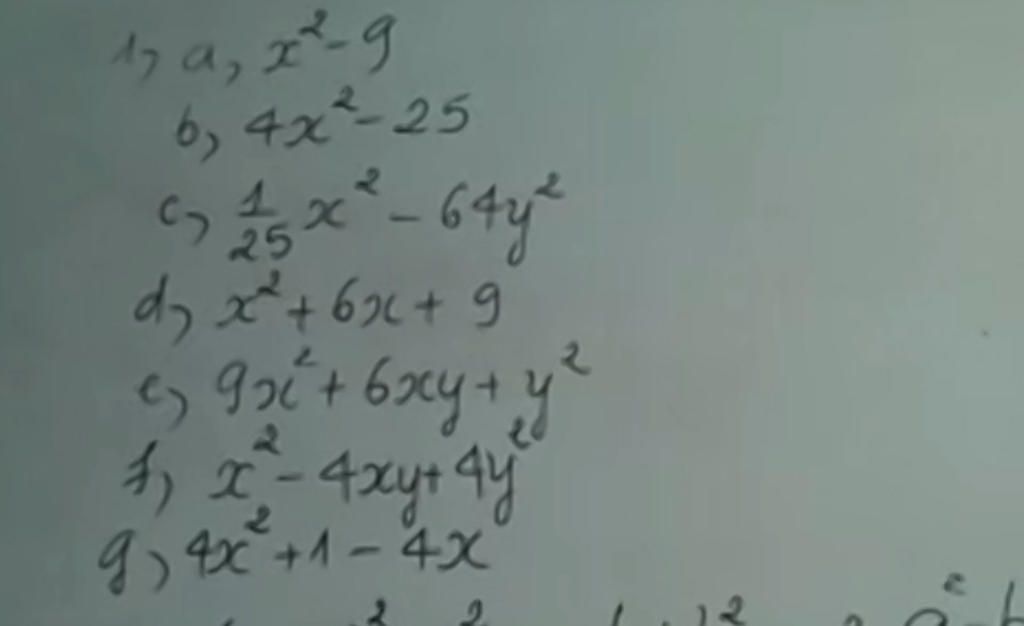 1, a, x² - 9
b, 4x² - 25
c, 1/25 x² - 64y²
d, x² + 6x + 9
e, 9x² + 6xy + y²
f, x² - 4xy + 4y²
g, 4x² + 1 - 4x